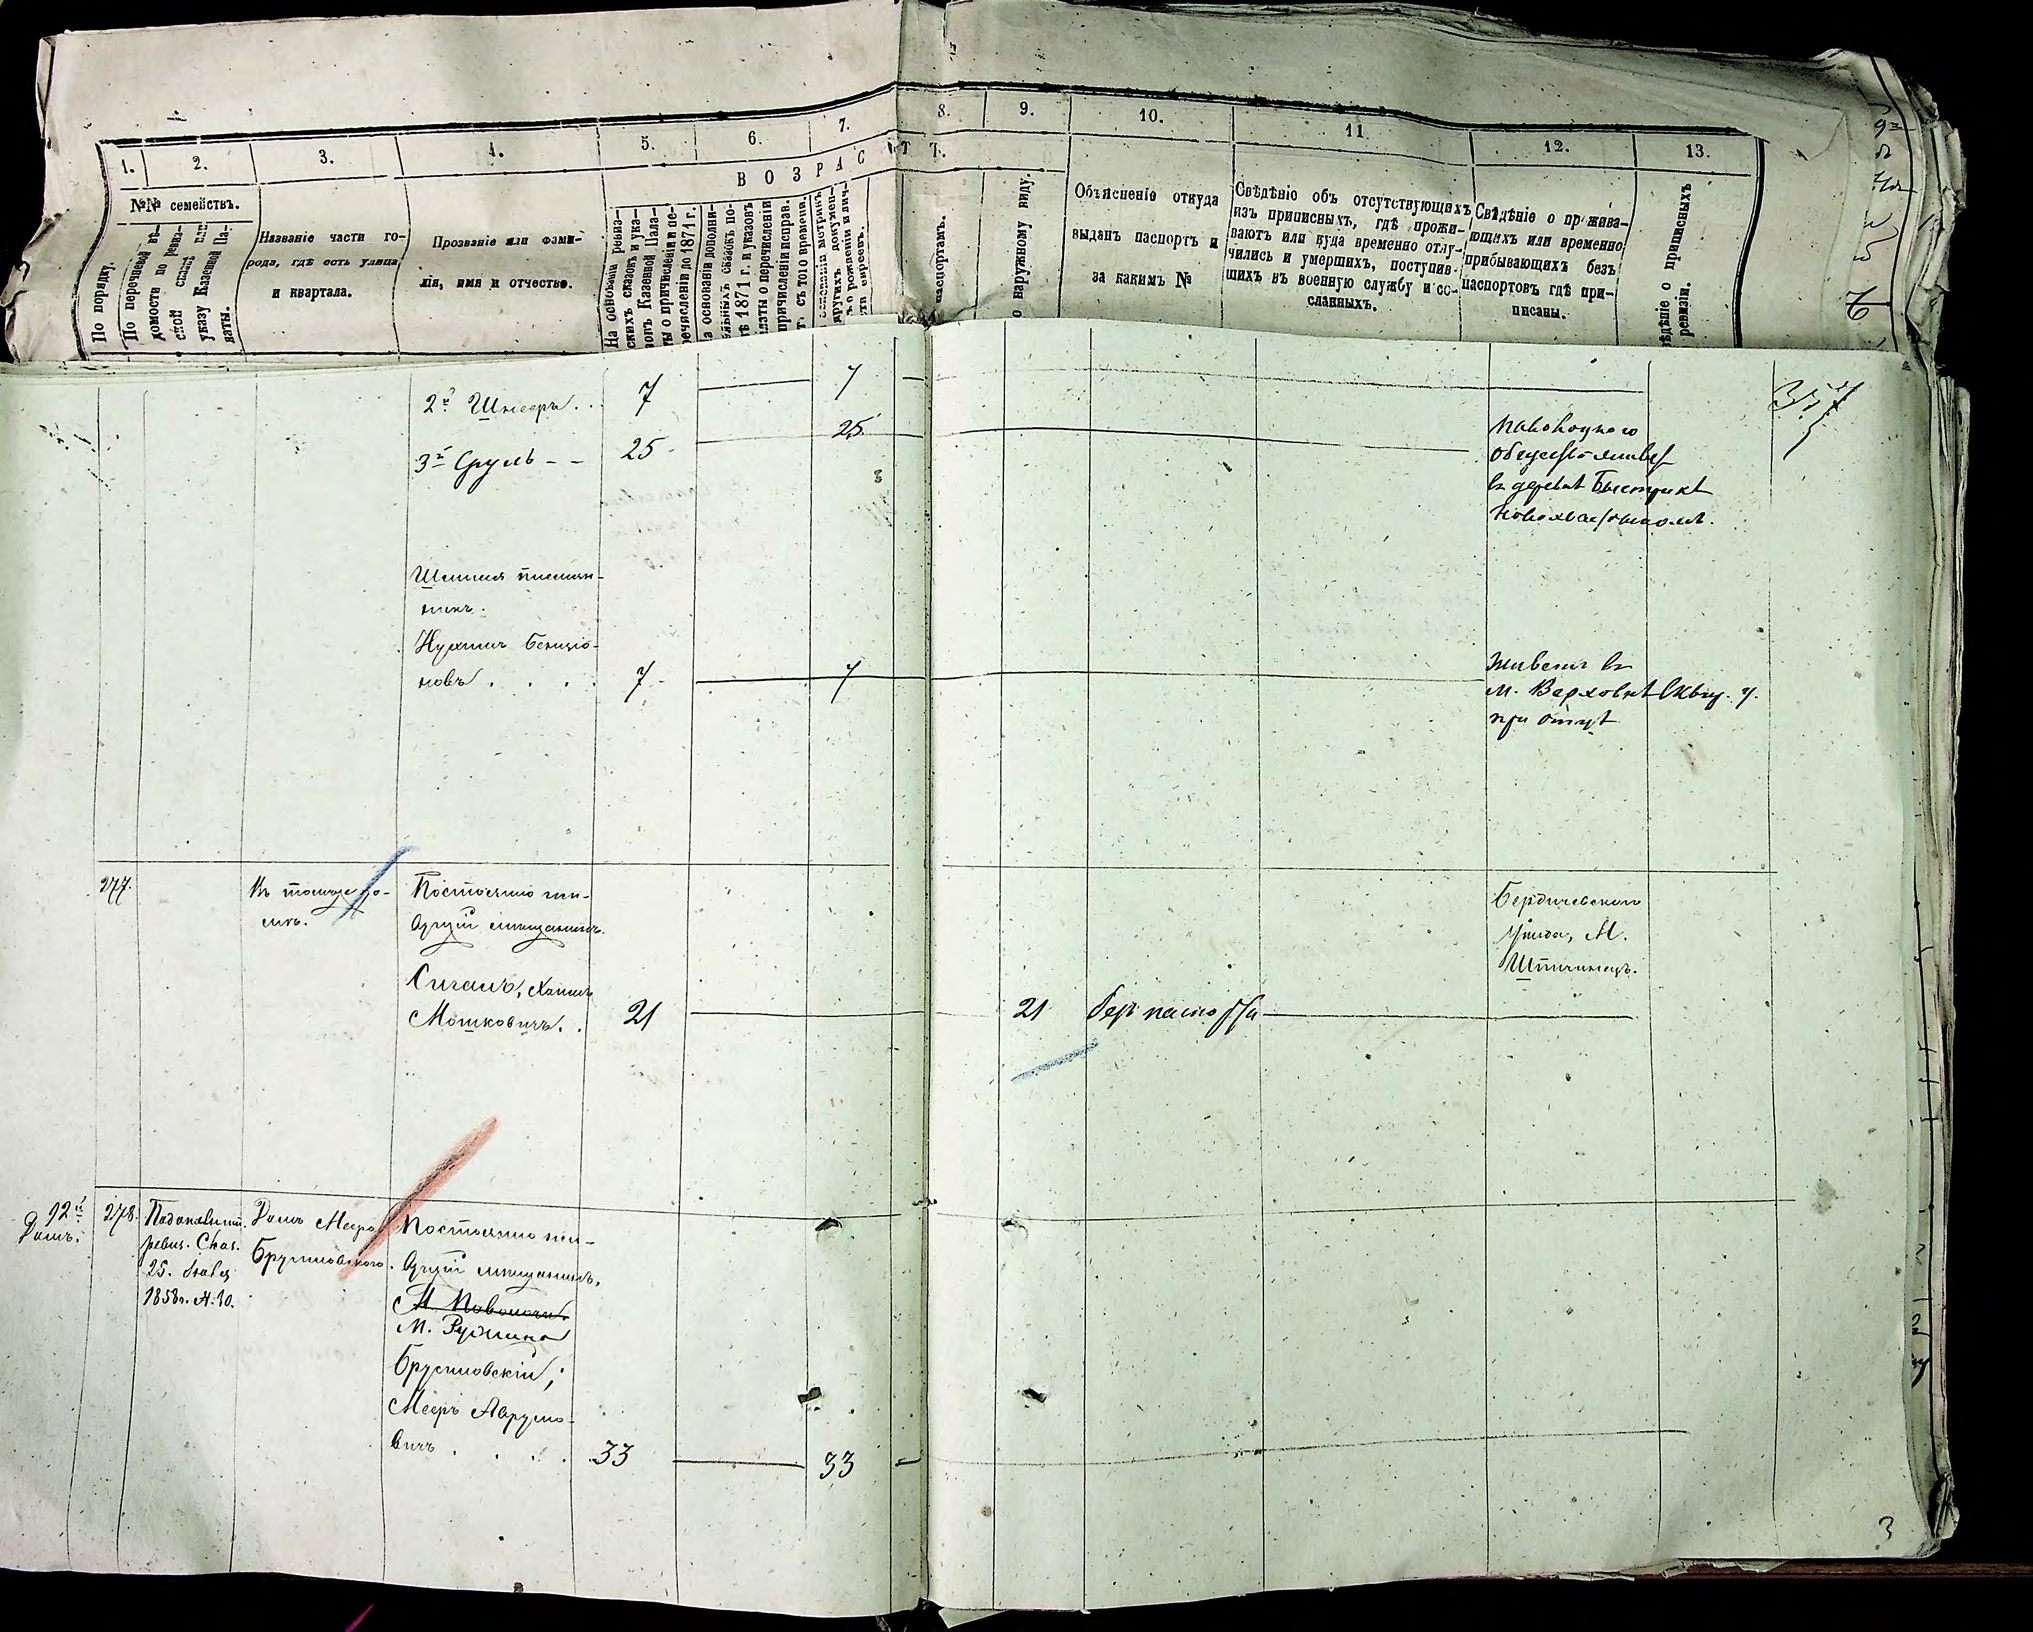 1. 2. 3. 4. 5. 6. 7. 8. 9. 10. 11. 12. 13.
В О З Р А С Т Ъ.
№№ семействъ.
По порядку.
По перечневой вѣ-
домости по ревиз-
ской сказкѣ или
указу Казенной Па-
латы.
Названіе части го-
рода, гдѣ есть улица
и квартала.
Прозваніе или фами-
лія, имя и отчество.
На основаніи ревиз-
скихъ сказокъ и ука-
зовъ Казенной Пала-
ты о причисленіи и пе-
речисленіи до 1871 г.
а основаніи дополни-
ельныхъ сказокъ по-
лѣ 1871 г. и указовъ
латы о перечисленіи
причисленіи исправ.
съ того времени.
основаніи метрикъ
другихъ докумен-
ъ о рожденіи и лич-
паспортамъ.
о наружному виду.
Объясненіе откуда
выданъ паспортъ и
за какимъ №
Свѣдѣніе объ отсутствующихъ
изъ приписныхъ, гдѣ прожи-
ваютъ или куда временно отлу-
чились и умершихъ, поступив-
шихъ въ военную службу и со-
сланныхъ.
Свѣдѣніе о прожива-
ющихъ или временно
прибывающихъ безъ
паспортовъ гдѣ при-
писаны.
ѣдѣніе о приписныхъ
ревизіи.
2й Шнееръ . . 7 7
3й Сруль - - 25 25
Паволоцкаго
общества живет
в деревне Быстрикѣ
Шлиома племян-
никъ.
Нухимъ Бенціо-
новъ . . . . 7 7
Живетъ въ
м. Верховнѣ Сквир. у.
при отцѣ
277. Въ томъ же до-
мѣ.
Постоянно жи-
вущій мѣщанинъ.
Сигалъ, Хаимъ
Мошковичъ. . 21 21 без паспорта
Бердичевскаго
уѣзда, М.
92й
Домъ.
278.
ревиз. Сказ.
1858г. №.10.
Домъ Меера
Брусиловскаго.
Постоянно жи-
вущій мѣщанинъ,
М. Паволочи.
М. Ружина
Брусиловскій,
Мееръ Аврумо-
вичъ . . . . 33 33
3